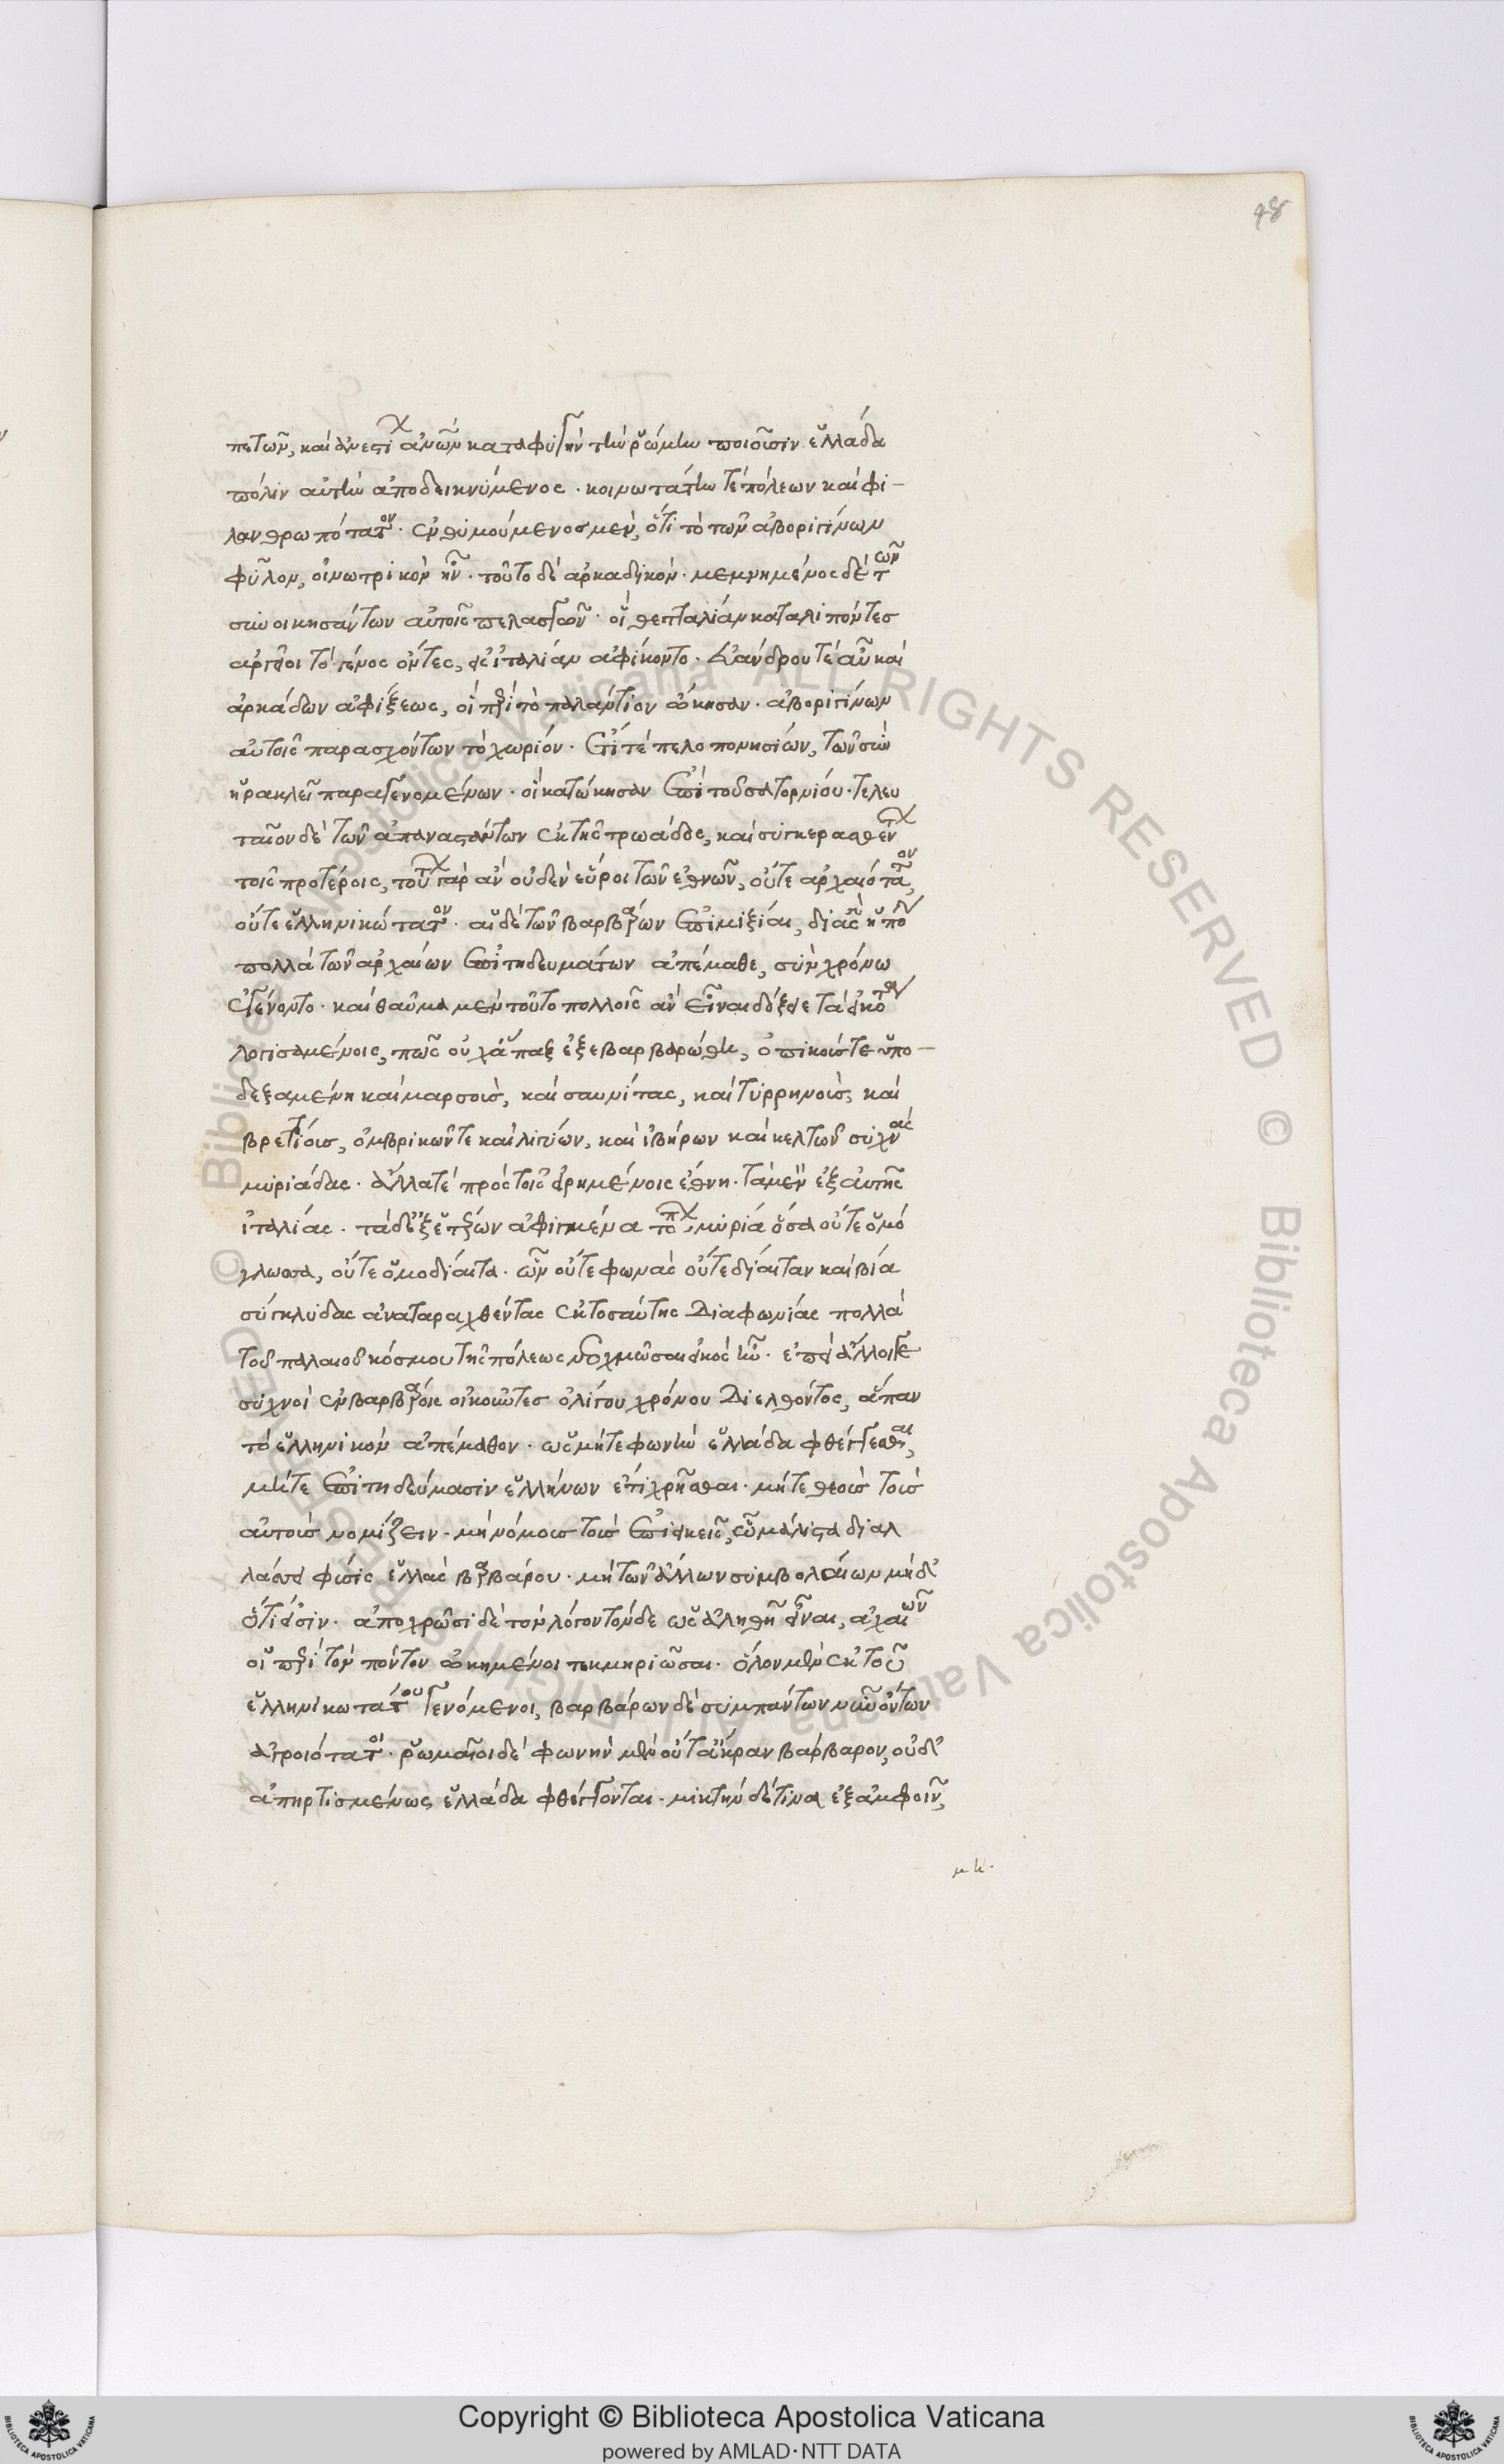 48
πετῶν, καὶ ἀνεστίων ἀνων καταφυγὴν τὴν ῥώμην ποιοῦσιν ἑλλάδα
πόλιν αὐτὴν ἀποδεικνύμενος. κοινωτάτην τὲ πόλεων καὶ φι-
λανθρωπότατον. ἐνθυμούμενος μὲν, ὅτι τὸ τῶν ἀβοριγίνων
φῦλον, οἰνωτρικὸν ἦν. τοῦτο δὲ ἀρκαδικόν. μεμνημένος δὲ τῶν
συνοικησάντων αὐτοῖς πελασγῶν. οἳ θετταλίαν καταλιπόντες
ἀργεῖοι τὸ γένος ὄντες, εἰς ἰταλίαν ἀφίκοντο. εὐάνδρου τὲ αὖ καὶ
ἀρκάδων ἀφίξεως, οἳ περὶ τὸ παλάντιον ᾤκησαν. ἀβοριγίνων
αὐτοῖς παρασχόντων τὸ χωρίον. ἔτι τὲ πελοπονησίων, τῶν σὺν
ἡρακλεῖ παραγενομένων. οἳ κατώκησαν ἐπὶ τοῦ σατορνίου. τελευ
ταῖον δὲ τῶν ἀπαναστάντων ἐκ τῆς τρωάδος, καὶ συγκερασθέντων
τοῖς προτέροις, τούτων γὰρ ἂν οὐδὲν εὕροι τῶν ἐθνῶν, οὔτε ἀρχαιότατον,
οὔτε ἑλληνικώτατον. αἱ δὲ τῶν βαρβάρων ἐπιμιξίαι, δι' ἃς ἡ πόλις
πολλὰ τῶν ἀρχαίων ἐπιτηδευμάτων ἀπέμαθε, σὺν χρόνω
ἐγένοντο. καὶ θαῦμα μὲν τοῦτο πολλοῖς ἂν εἶναι δόξειε τὰ εἰκότα
λογισαμένοις, πῶς οὐχ ἅπαξ ἐξεβαρβαρώθη, ὀπικούς τε ὑπο-
δεξαμένη καὶ μαρσοὺς, καὶ σαυνίτας, καὶ τυρρηνοὺς, καὶ
βρετίους, ὀμβρικῶν τε καὶ λιγύων, καὶ ἰβήρων καὶ κελτῶν συχνὰς
μυριάδας. ἄλλα τὲ πρὸς τοῖς εἰρημένοις ἔθνη. τὰ μὲν ἐξ αὐτῆς
ἰταλίας. τὰ δ' ἐξ ἑτέρων ἀφιγμένα τόπων μυρία ὅσα οὔτε ὁμό
γλωττα, οὔτε ὁμοδίαιτα. ὧν οὔτε φωνὰς οὔτε δίαιταν καὶ βία
σύγκλυδας ἀναταραχθέντας ἐκ τοσαύτης διαφωνίας πολλὰ
τοῦ παλαιοῦ κόσμου τῆς πόλεως νεοχμῶσαι εἰκὸς ἦν. ἐπεὶ ἄλλοι γε
συχνοὶ ἐν βαρβάροις οἰκοῦντες ὀλίγου χρόνου διελθόντος, ἅπαν
τὸ ἑλληνικὸν ἀπέμαθον. ὡς μήτε φωνὴν ἑλλάδα φθέγγεσθαι,
μήτε ἐπιτηδεύμασιν ἑλλήνων ἔτι χρῆσθαι. μήτε θεοὺς τοὺς
αὐτοὺς νομίζειν. μὴ νόμους τοὺς ἐπιεικεῖς, ὧ μάλιστα διαλ
λάσσει φύσις ἑλλὰς βαρβάρου. μὴ τῶν ἄλλων συμβολαίων μηδ'
ὁτιεσίν. ἀποχρῶσι δὲ τὸν λόγον τόνδε ὡς ἀληθῆ εἶναι, ἀχαιῶν
οἱ περὶ τὸν πόντον ᾠκημένοι τεκμηριῶσαι. ὅλον μὲν ἐκ τοῦ
ἑλληνικωτάτου γενόμενοι, βαρβάρων δὲ συμπάντων νῦν ὄντων
ἀγριότατοι. ῥωμαῖοι δὲ φωνὴν μὲν οὔτ' ἄκραν βάρβαρον, οὐδ'
ἀπηρτισμένως ἑλλάδα φθέγγονται. μικτὴν δέ τινα ἐξ ἀμφοῖν,
μη.
© Biblioteca Apostolica Vaticana ALL RIGHTS RESERVED © Biblioteca Apostolica Vaticana ALL RIGHTS RESERVED
Copyright © Biblioteca Apostolica Vaticana
powered by AMLAD·NTT DATA
BIBLIOTECA APOSTOLICA VATICANA
BIBLIOTECA APOSTOLICA VATICANA